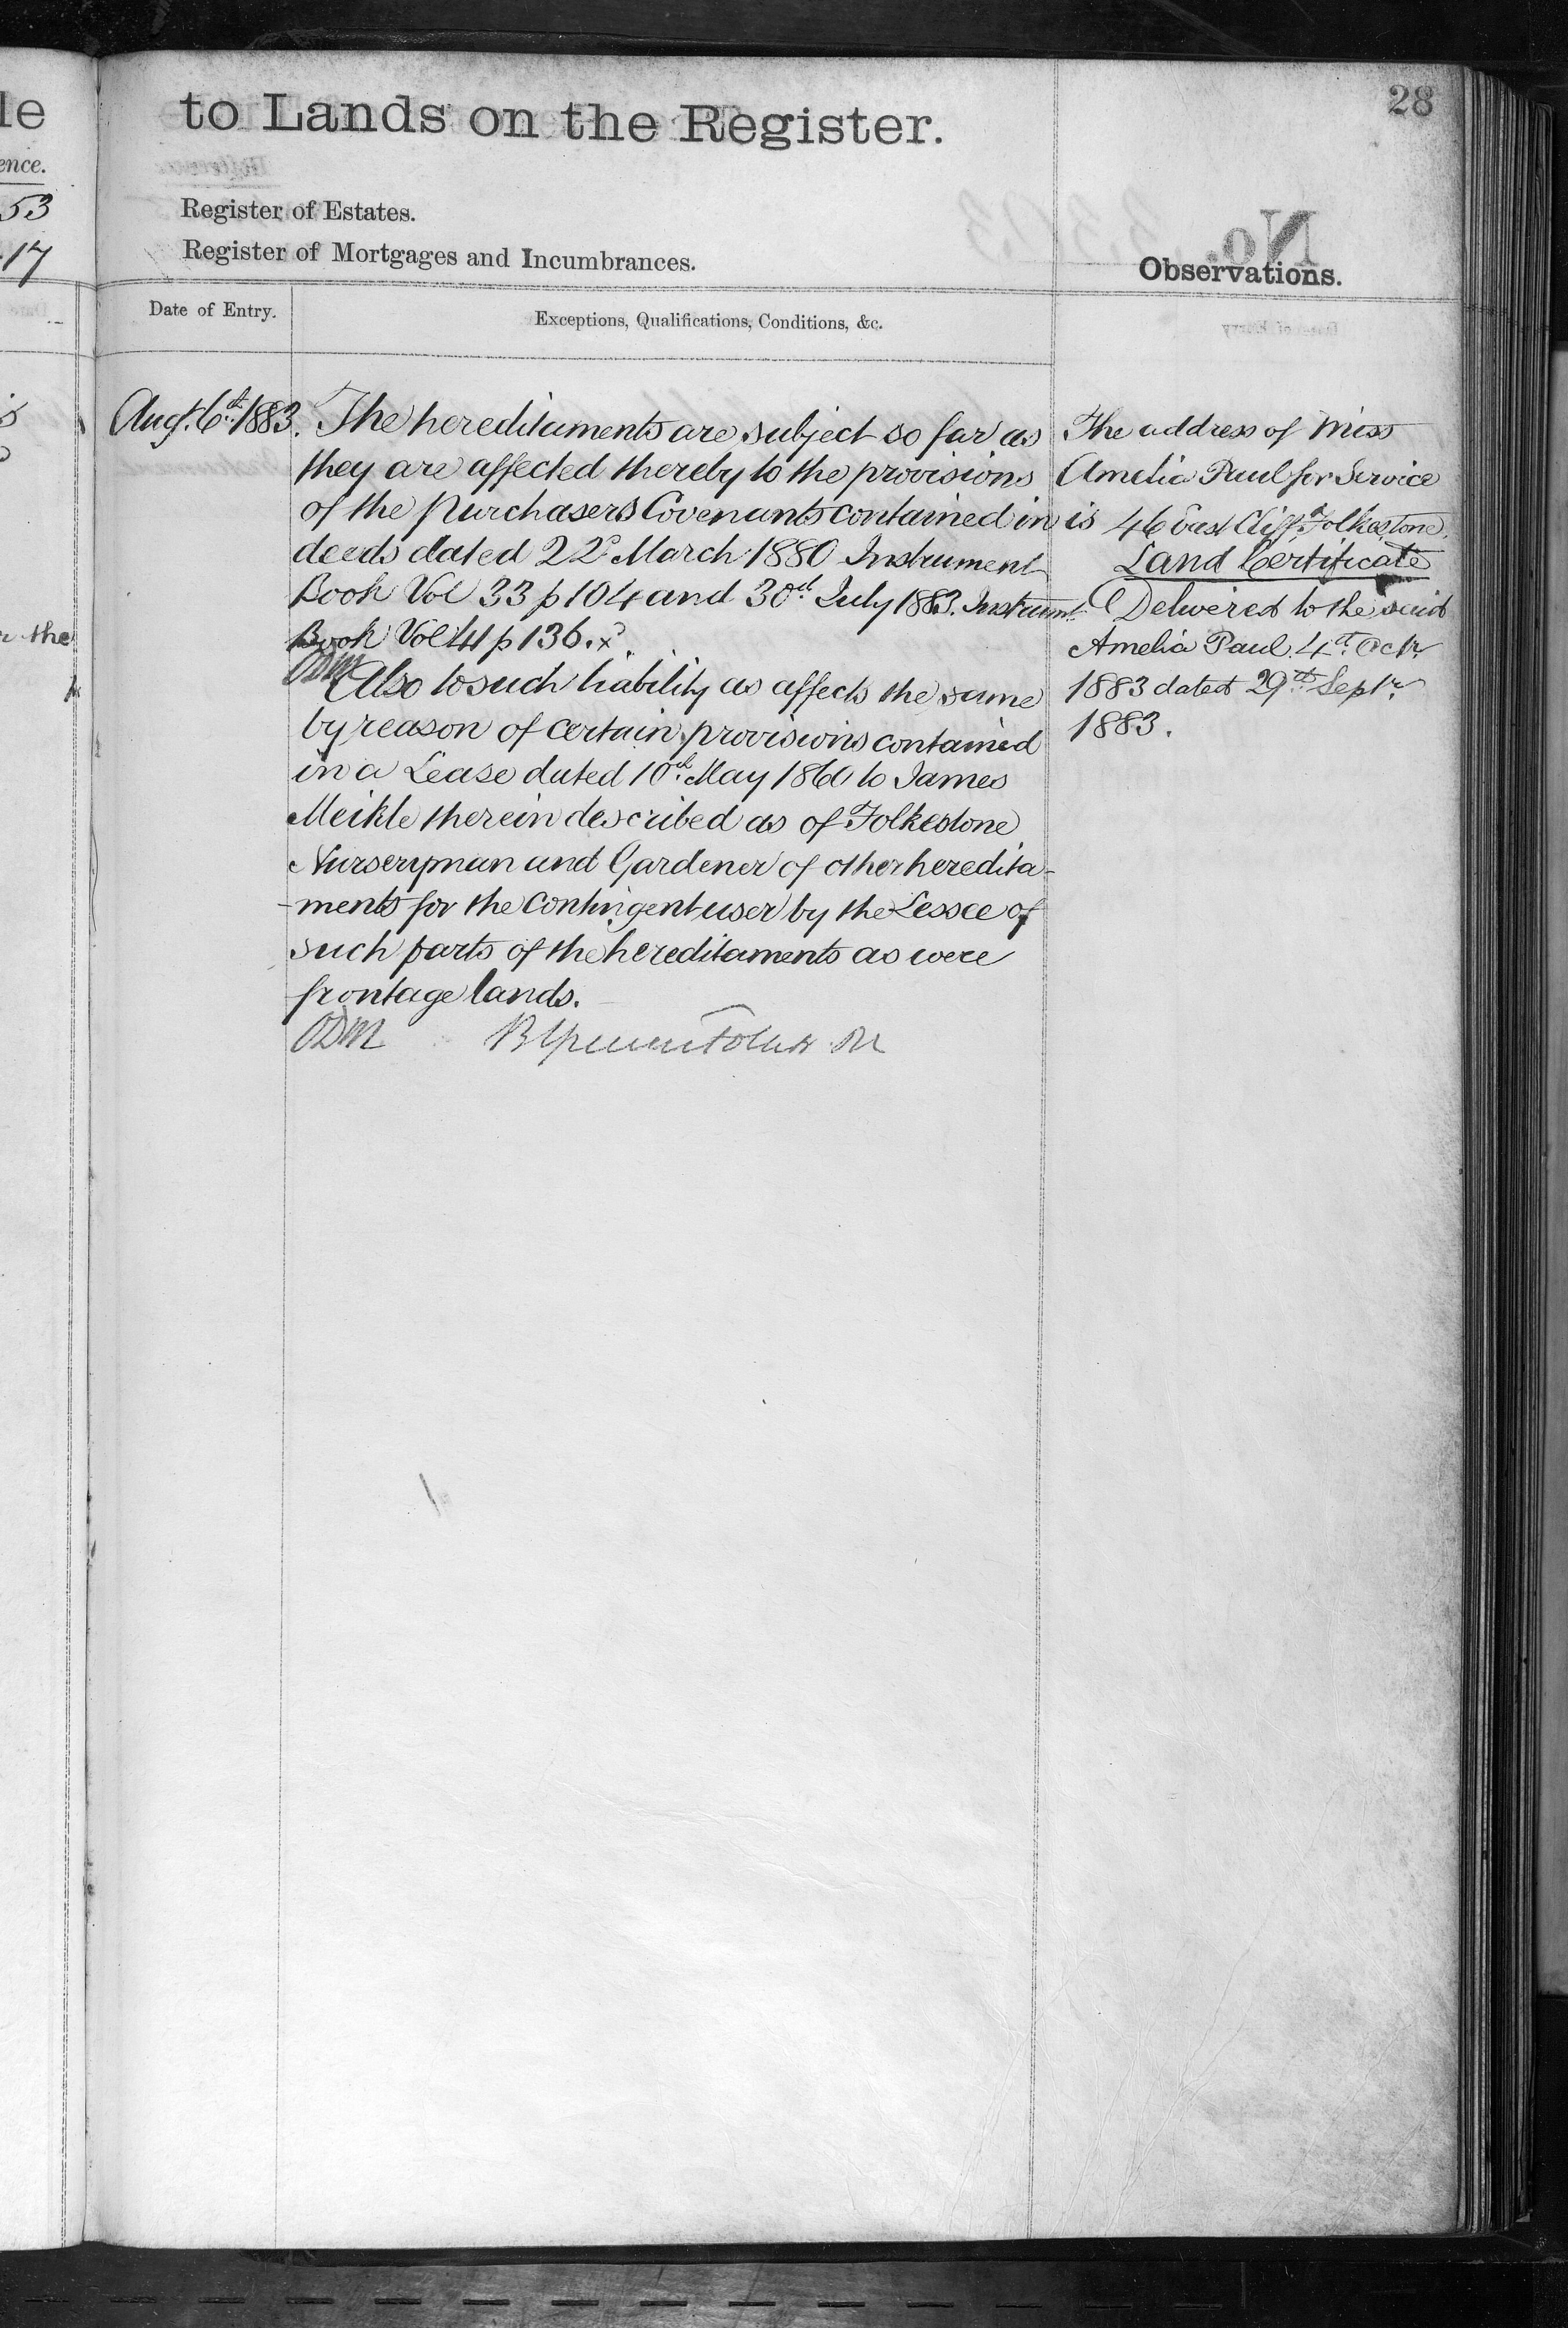 le
ence.
53
17
the
to Lands on the Register.
28
Register of Estates.
Register of Mortgages and Incumbrances.
Observations.
Date of Entry.
Exceptions, Qualifications, Conditions, &c.
Augt. 6th 1883.
The hereditaments are subject so far as
they are affected thereby to the provisions
of the Purchasers Covenants contained in
deeds dated 22d March 1880 Instrument
Book Vol 33 p 104 and 30th July 1883. Instrumt.
Book Vol 41 p 136. x
ODM
Also to such liability as affects the same
by reason of certain provisions contained
in a Lease dated 10th May 1860 to James
Meikle therein described as of Folkestone
Nurseryman and Gardener of other heredita-
-ments for the contingent user by the Lessee of
such parts of the hereditaments as were
frontage lands.
ODM
The address of Miss
Amelia Paul for Service
is 46 East Cliff Folkestone.
Land Certificate
Delivered to the said
Amelia Paul. 4th Octr
1883 dated 29th Septr
1883.